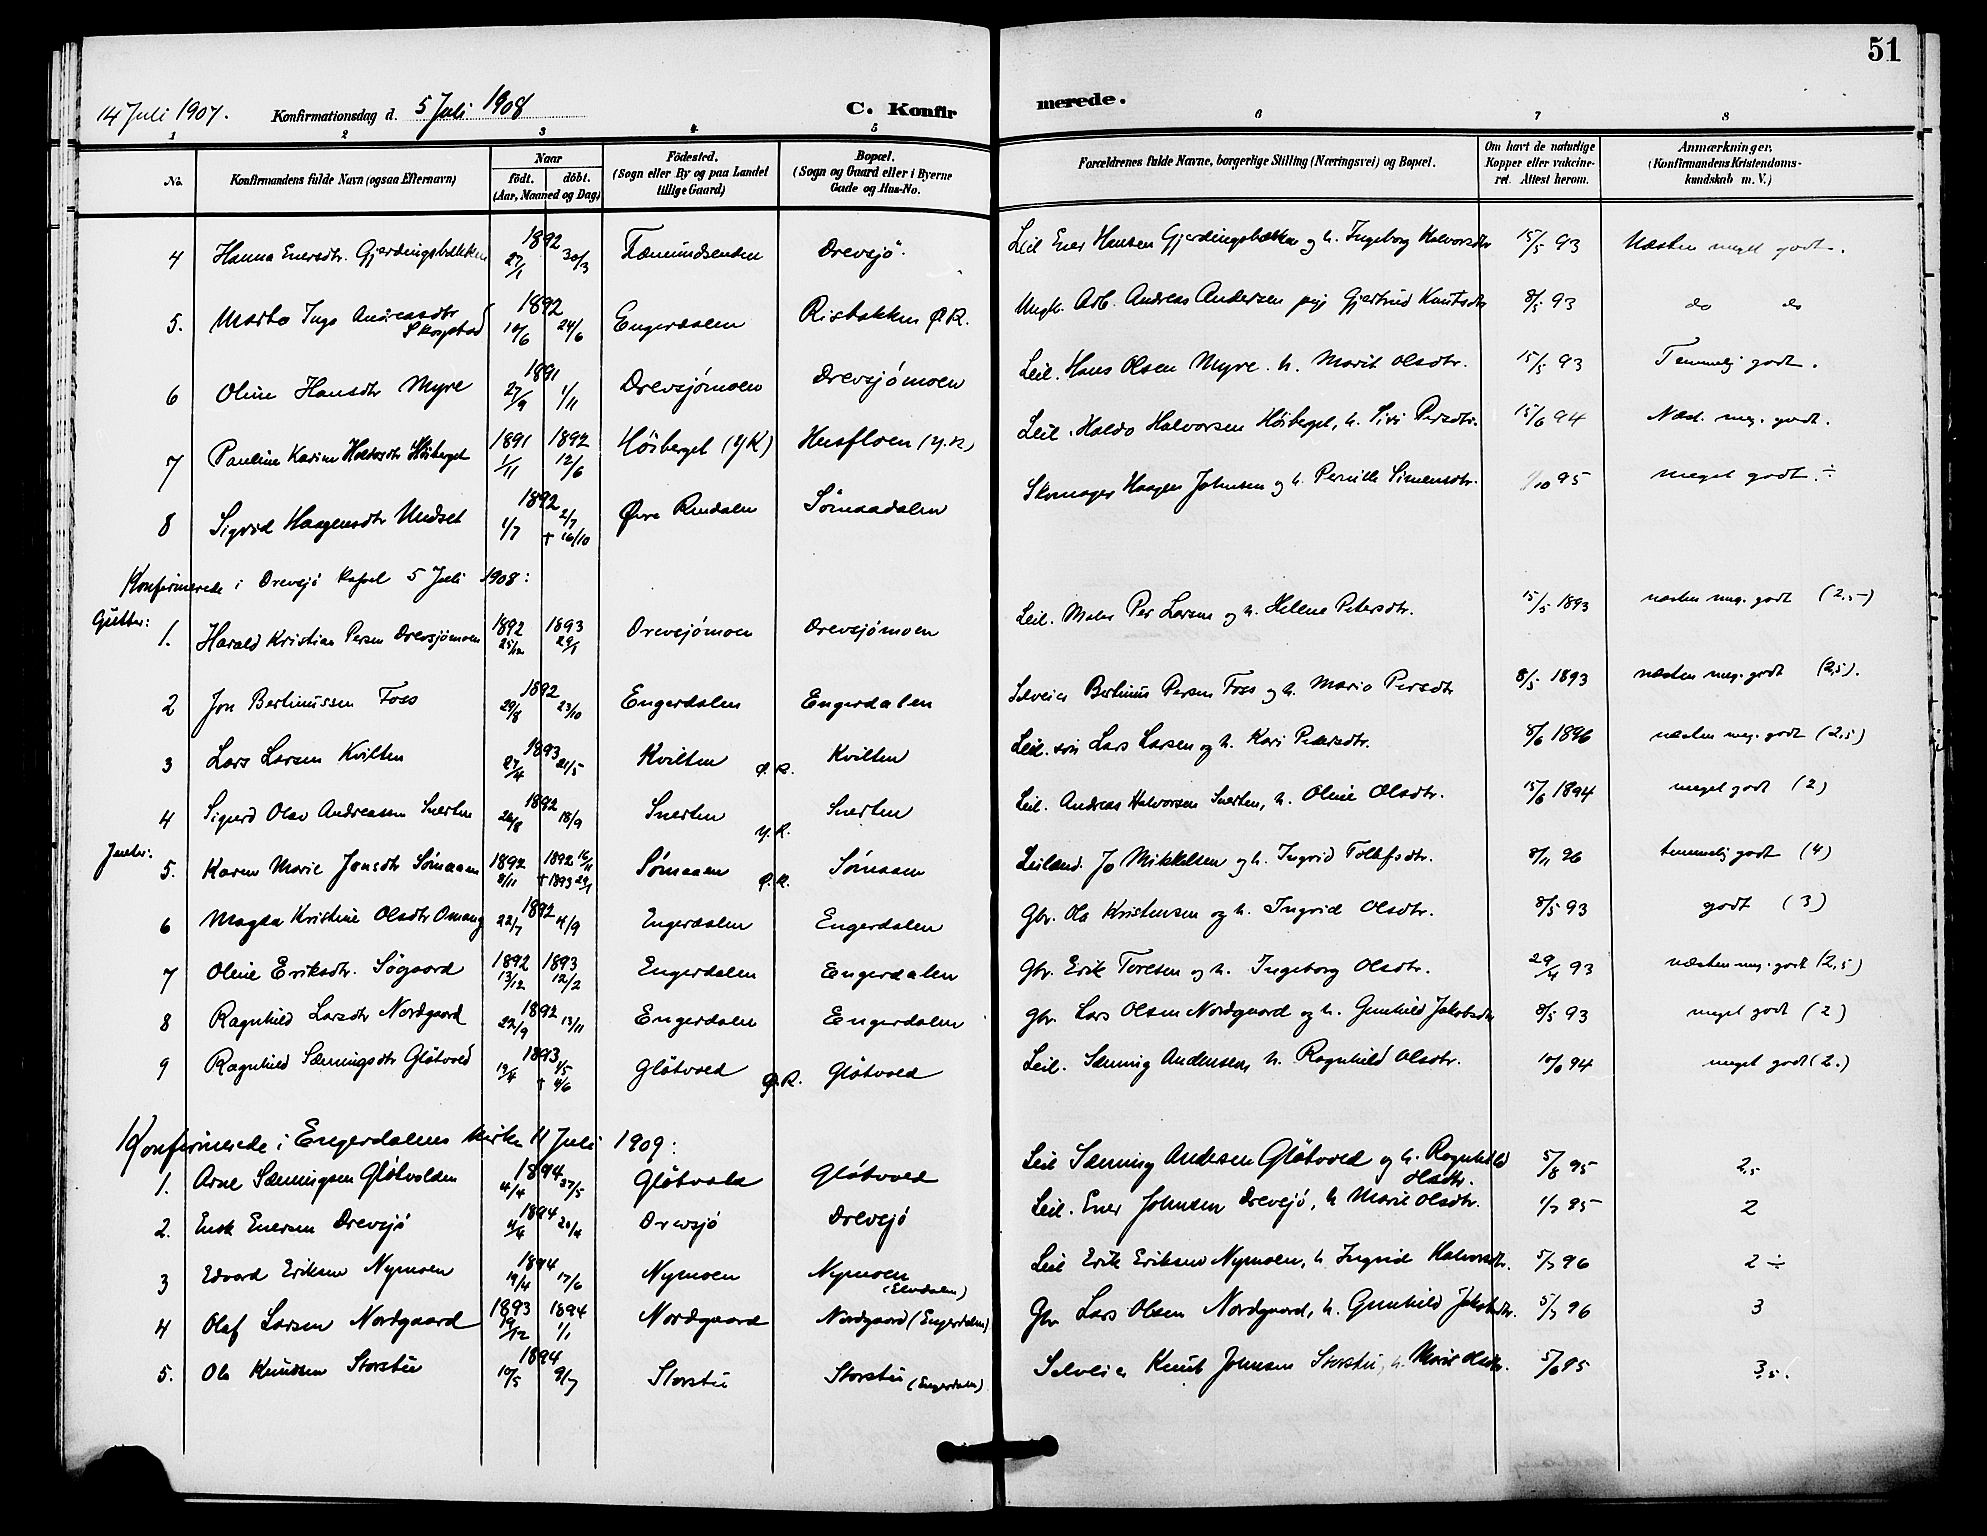 51
14 Juli 1907. Konfirmationsdag d. 5 Juli 1908 C. Konfirmerede.
1 2 3 4 5 6 7 8
No. Konfirmandens fulde Navn (ogsaa Efternavn) Naar födt. döbt. (Aar, Maaned og Dag) Födested. (Sogn eller By og paa Landet tillige Gaard) Bopæl. (Sogn og Gaard eller i Byerne Gade og Hus-No. Forældrenes fulde Navne, borgerlige Stilling (Næringsvei) og Bopæl. Om havt de naturlige Kopper eller vakcineret. Attest herom. Anmærkninger. (Konfirmandens Kristendomskundskab m. V.)
4 Hanna Enersdtr. Gjerdingsbækken 1892 27/1 30/3 Fæmundsenden Drevsjö. Leil Ener Hansen Gjerdingsbækken og h. Ingeborg Halvorsdtr 15/5 93 Næsten meget godt.
5. Inga Andreasdtr Skogstad 1892 24/6 Engerdalen Risbakken Ø.R. Ungk. Arb. Andreas Andersen pige Gjertrud Knutsdtr 8/5 93 do do
6 Oline Hansdtr Myre 1891 27/9 1/11 Drevsjømoen Drevsjómoen Leil. Hans Olsen Myre. h. Marit Olsdtr. 15/5 93 Temmelig godt.
7 Pauline Karine Høiberget 1891 1/11 1892 12/6 Höiberget (Y.R) Husfloen (Y.R) Leil. Haldo Halvorsen Höiberget, h. Siri Persdtr. 15/6 94 Næst. meg. godt.
8 Sigrid Haagensdtr Undset 1892 1/7 2/7 † 16/10 Øvre Rendalen Sömaadalen Skomager Haagen Johnsen og h. Pernille Simensdtr. 10 95 meget godt ÷
Konfirmerede i Drevsjö kapel 5 Juli 1908:
Gutter:
1. Harald Kristian Persen Drevsjömoen 1892 25/12 1893 29/1 Drevsjómoen Drevsjómoen Leil. Maler Per Larsen og h. Helene Petersdtr. 15/5 1893 næsten meg. godt (2,5)
2 Jon Bertinussen Foss 1892 29/8 23/10 Engerdalen Engerdalen Selveier Bertinus Persen Foss og h. Marie Persdtr 8/5 1893 næsten meg. godt (2,5).
3 Lars Larsen Kvilten 1893 27/4 21/5 Kvilten Ø.R. Kvilten Leil. Lars Larsen og h. Kari Pedersdtr. 8/6 1896 næsten meg. godt (2,5)
4 Sigurd Olav Andreassen Snerten 1892 26/8 18/9 Snerten Y.R. Snerten Leil. Andreas Halvorsen Snerten, h. Oline Olsdtr. 15/6 1894 meget godt (2)
Jenter:
5. Karen Marie Jonsdtr Sömaaen 1892 8/11 1892 16/11 † 1893 29/1 Sömaaen Ø.R. Sömaaen Leilænd. Jo Mikkelsen og h. Ingrid Tollefsdtr. 8/11 96 temmelig godt (4)
6 Magda Kristine Olsdtr Omang 1892 22/7 4/9 Engerdalen Engerdalen Gbr. Ola Kristensen og h. Ingrid Olsdtr. 8/5 93 godt (3)
7 Oline Eriksdtr. Sögaard 1892 13/12 1893 12/2 Engerdalen Engerdalen Gbr. Erik Toresen og h. Ingeborg Olsdtr. 29/4 93 næsten meg. godt (2,5)
8 Ragnhild Larsdtr Nordgaard 1892 22/9 13/11 Engerdalen Engerdalen Gbr. Lars Olsen Nordgaard og h. Gunhild Jakobsdtr 8/5 93 meget godt (2)
9 Ragnhild Sæmingsdtr Glötvold 1893 13/4 1/5 † 4/6 Glötvold Ø.R. Glötvold Leil. Sæming Andersen, h. Ragnhild Olsdtr. 94 meget godt (2.)
Konfirmerede i Engerdalens kirke 11 Juli 1909:
1. Arne Sæmingsen Glötvolden 1894 4/4 27/5 Glötvold Glötvold Leil Sæming Andersen Glötvold og h. Ragnhild Olsdtr. 5/8 95 2,5
2. Enersen Drevsjö 1894 Drevsjö Drevsjö Leil. Ener Johnsen Drevsjö, h Marie Olsdtr. 1/7 95 2
3 Edvard Eriksen Nymoen 1894 19/4 17/6 Nymoen Nymoen (Elvdalen) Leil Erik Eriksen Nymoen, h Ingrid Halvorsdtr. 5/7 96 2 ÷
4 Olaf Larsen Nordgaard 1893 19/12 1894 1/1 Nordgaard Nordgaard (Engerdalen) Gbr Lars Olsen Nordgaard, h. Gunhild Jakobsdtr. 5/7 96 3
5. Ola Knudsen Storstu 1894 10/5 9/7 Storstu Storstu (Engerdalen) Selveier Knut Johnsen Storstu, h. Marit Olsdtr. 95 3,5.